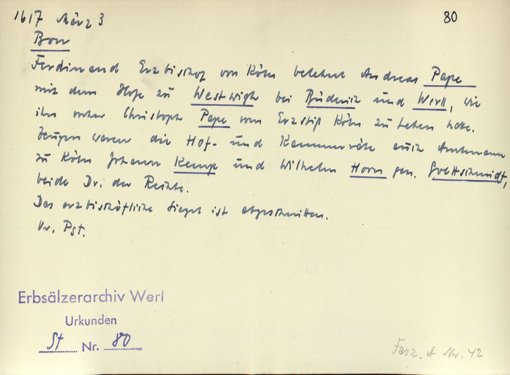 1617 März 3
80
Bonn
Ferdinand Erzbischof von Köln belehnt Andreas Pape
mit dem Hofe zu Westwigh bei Büderich und Werl, wie
ihn vorher Christoph Pape vom Erzstift Köln zu Lehen hatte.
Zeugen waren die Hof- und Kammerräte auch Amtmann
zu Köln Johann Kemp und Wilhelm Horn gen. Goltschmidt,
beide Dr. der Rechte.
Das erzbischöfliche Siegel ist abgeschnitten.
Or. Pgt.
Erbsälzerarchiv Werl
Urkunden
St Nr. 80
Fasz. A Nr. 42